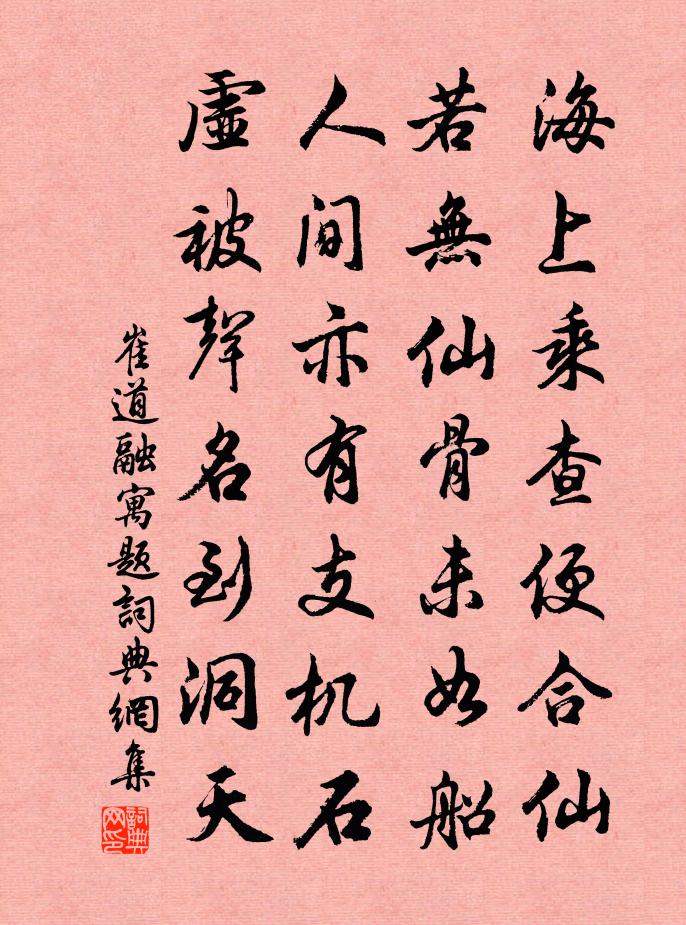 海上乘查便合仙
若無仙骨未如船
人间亦有支机石
虛被聲名到洞天
崔道融寓題詞典網集
詞典网印